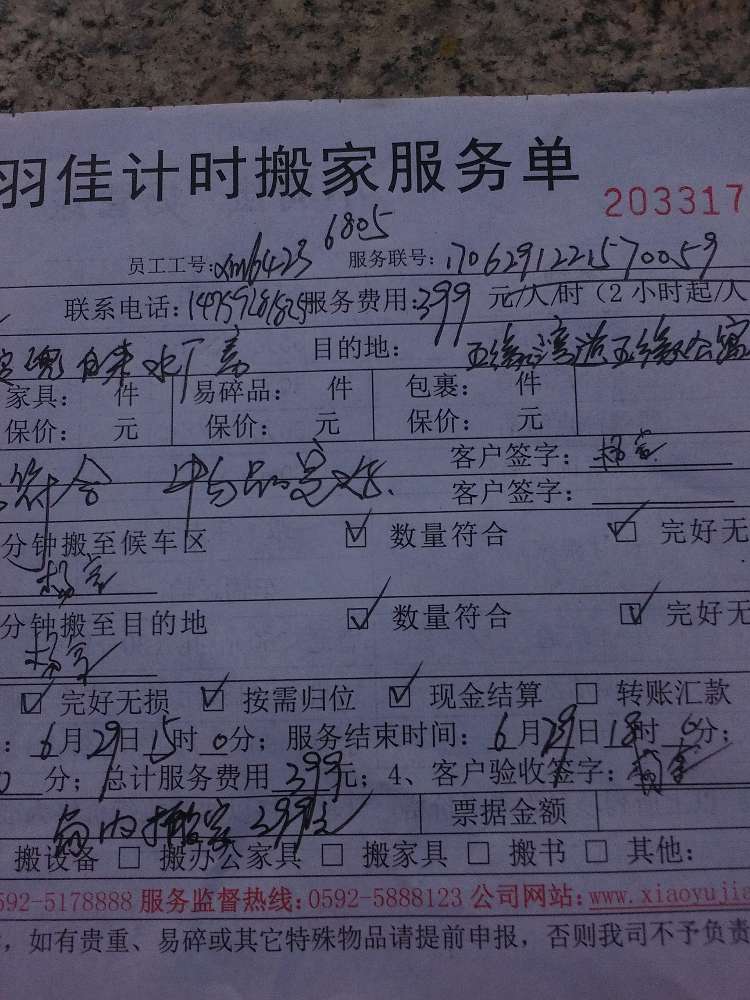 羽佳计时搬家服务单
203317
6805
员工工号: xm6423 服务联号: 1706291221570059
联系电话: 服务费用: 399 元/人/时（2小时起/人
自来水厂 目的地: 五缘湾道五缘公寓
家具: 件 易碎品: 件 包裹: 件
保价: 元 保价: 元 保价: 元
符合 客户签字:
客户签字:
分钟搬至候车区 ☑ 数量符合 ☑ 完好无
分钟搬至目的地 ☑ 数量符合 ☑ 完好无
☑ 完好无损 ☑ 按需归位 ☑ 现金结算 □ 转账汇款
: 6月29日15时0分; 服务结束时间: 6月29日18时0分;
0分; 总计服务费用 399元; 4、客户验收签字:
内搬家 399元 票据金额
搬设备 □ 搬办公家具 □ 搬家具 □ 搬书 □ 其他:
592-5178888 服务监督热线: 0592-5888123 公司网站: www.xiaoyujia
, 如有贵重、易碎或其它特殊物品请提前申报，否则我司不予负责